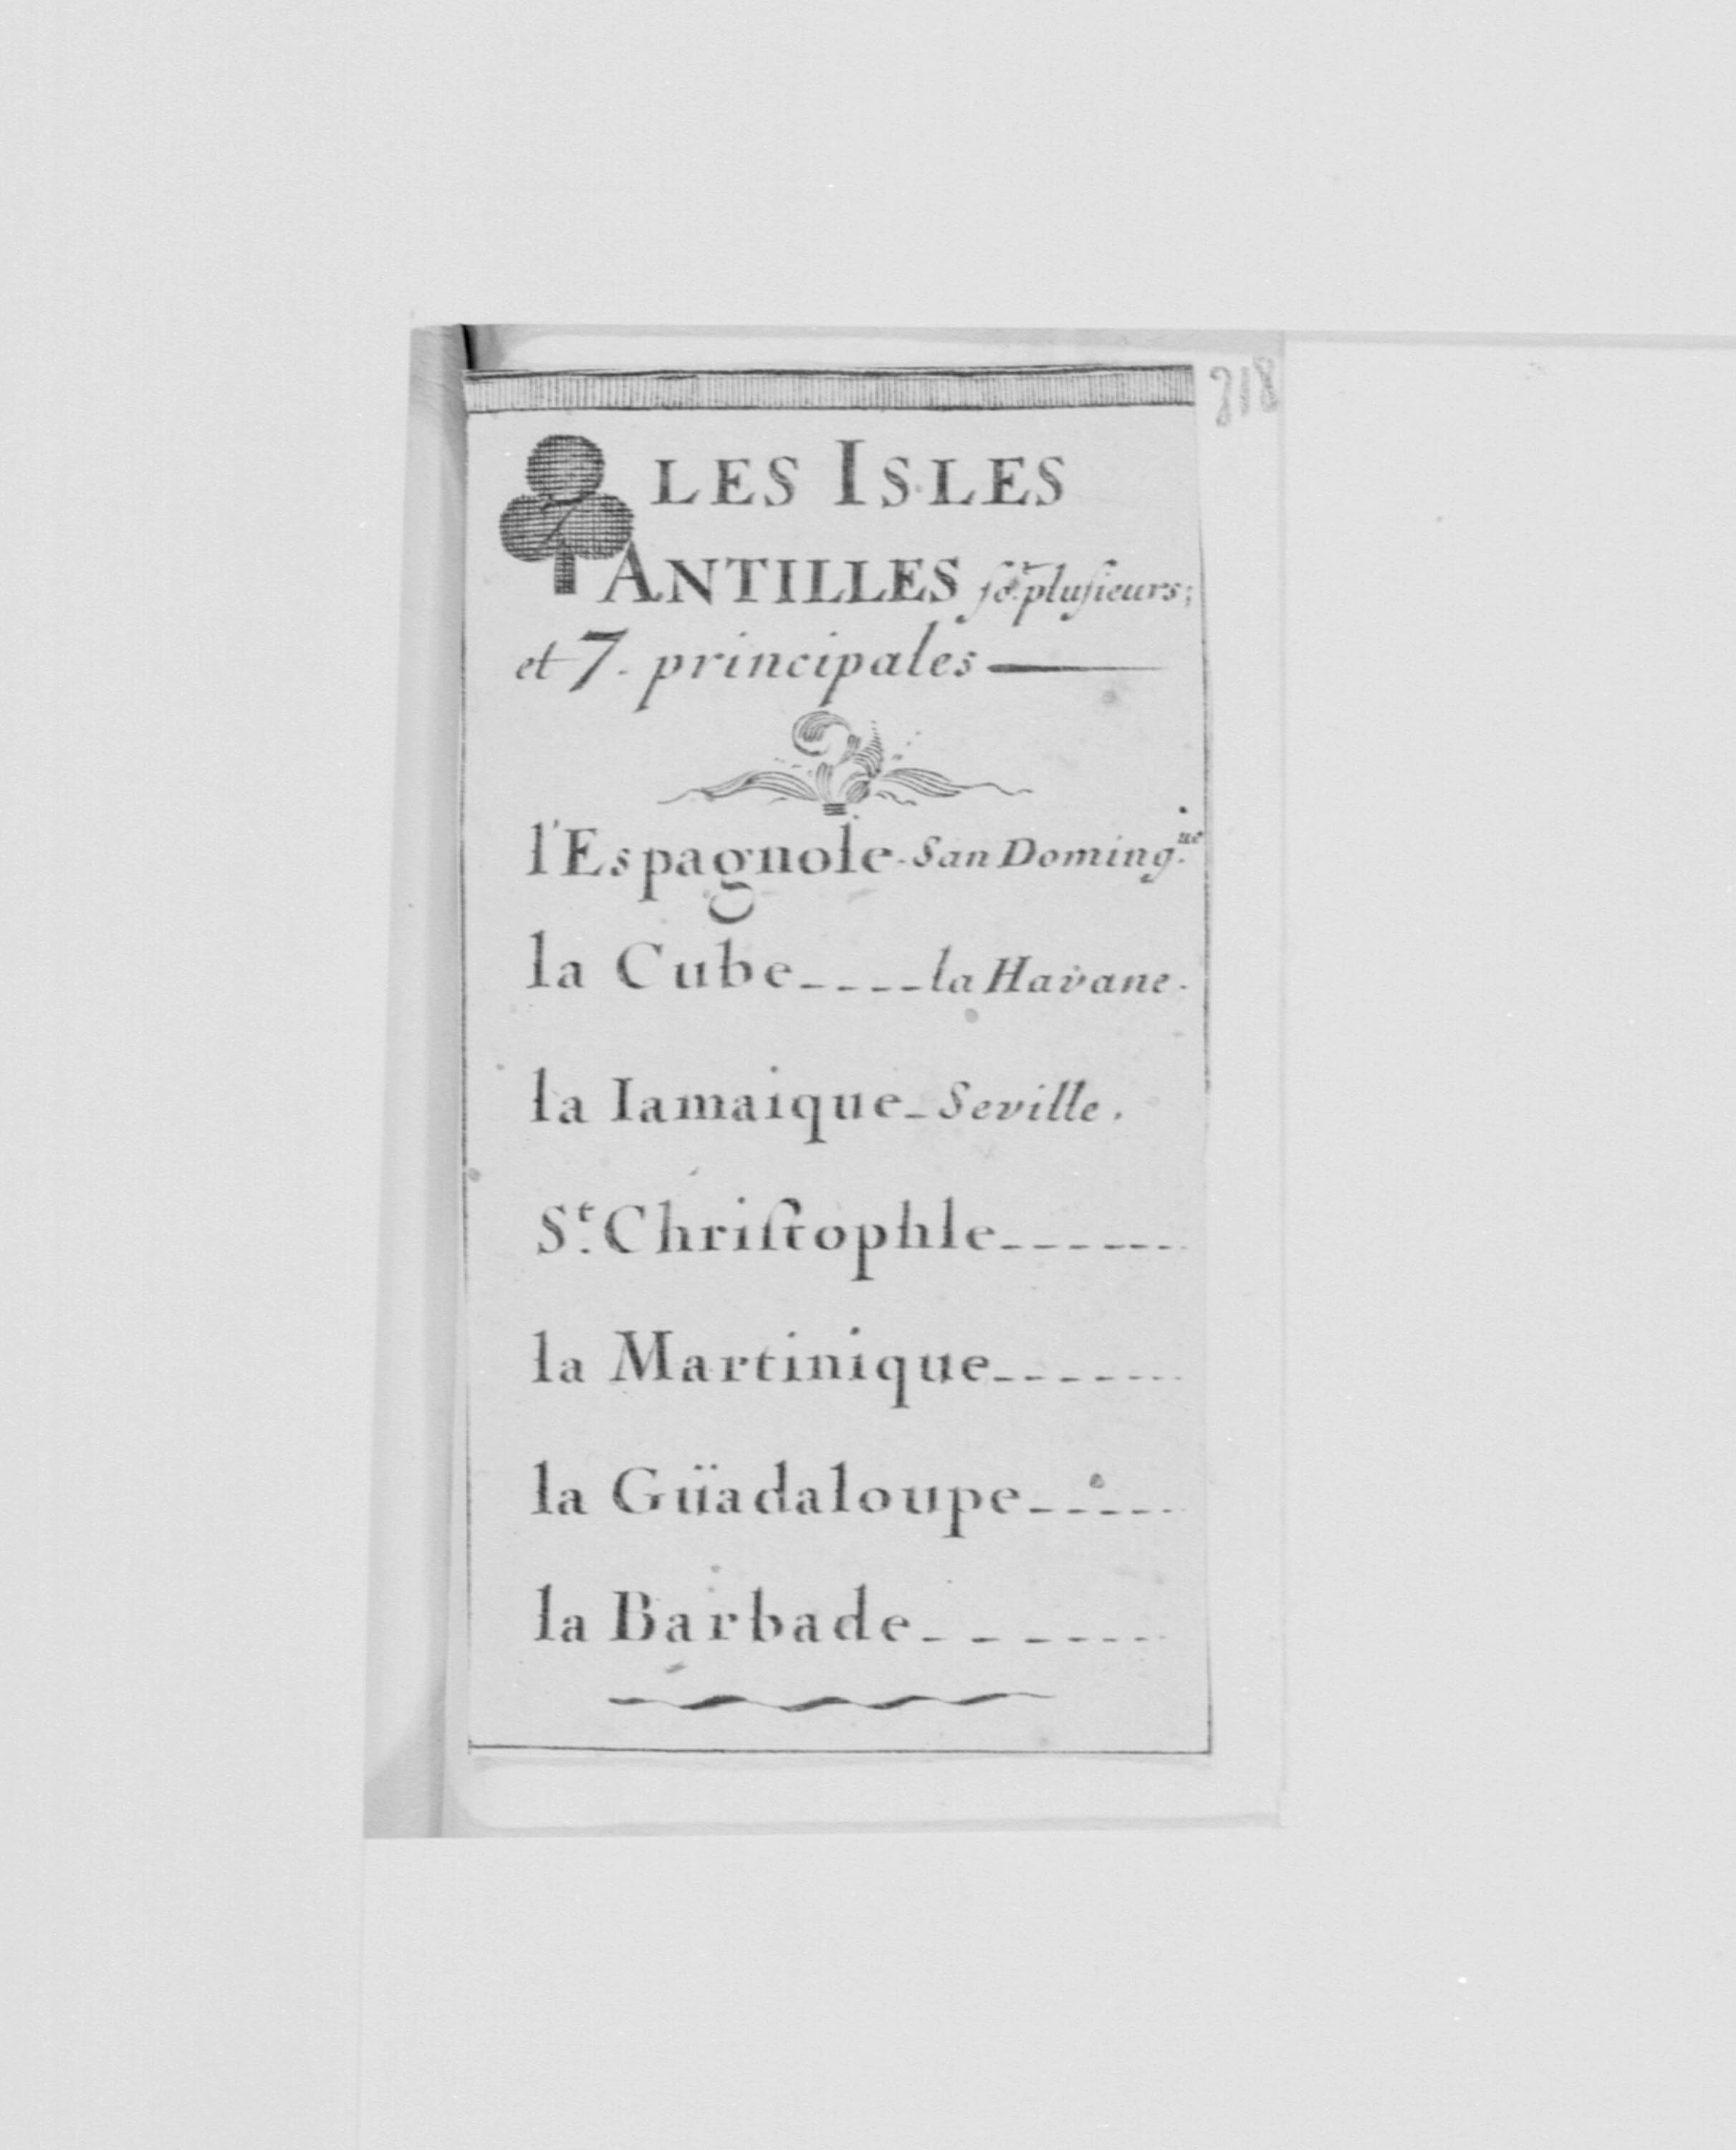 818
LES ISLES
ANTILLES ſõt pluſieurs;
et 7. principales
l'Espagnole. San Doming.ue
la Cube____la Havane.
la Iamaique_Seville.
St. Chriſtophle______
la Martinique______
la Güadaloupe_____
la Barbade_______